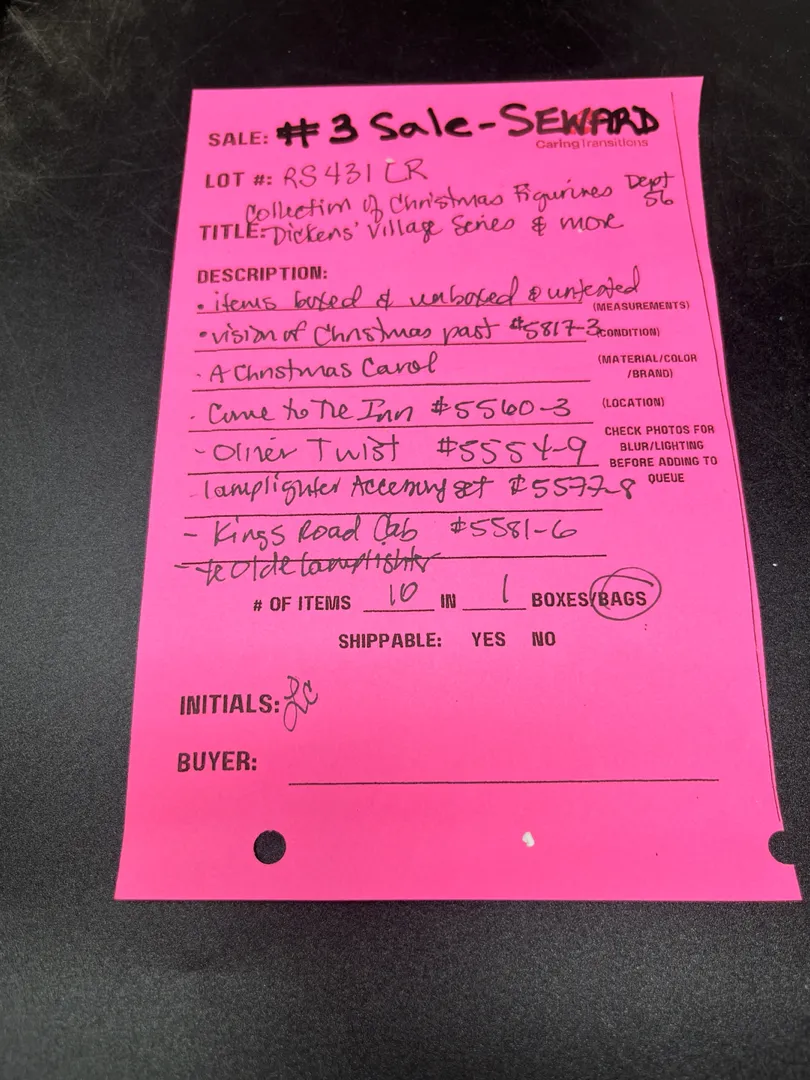 SALE: #3 Sale-SEWARD
Caring Transitions
LOT #: RS431 CR
Collection of Christmas Figurines Dept 56
TITLE: Dickens' Village Series & more
DESCRIPTION:
• items boxed & unboxed & untested
(MEASUREMENTS)
• vision of Christmas past #5817-3
(CONDITION)
- A Christmas Carol
(MATERIAL/COLOR
/BRAND)
- Come to The Inn #5560-3
(LOCATION)
- Oliver Twist #5554-9
CHECK PHOTOS FOR
BLUR/LIGHTING
BEFORE ADDING TO
QUEUE
- lamplighter Accessory set #5577-8
- Kings Road Cab #5581-6
- Ye Olde Lamplighter
# OF ITEMS 10 IN 1 BOXES/BAGS
SHIPPABLE: YES NO
INITIALS: LC
BUYER: